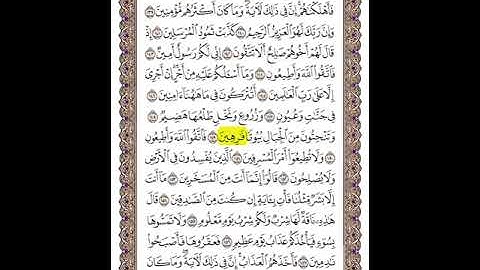 فَأَهْلَكْنَٰهُمْ إِنَّ فِى ذَٰلِكَ لَءَايَةً وَمَا كَانَ أَكْثَرُهُم مُّؤْمِنِينَ ١٣٩
وَإِنَّ رَبَّكَ لَهُوَ ٱلْعَزِيزُ ٱلرَّحِيمُ ١٤٠ كَذَّبَتْ ثَمُودُ ٱلْمُرْسَلِينَ ١٤١ إِذْ
قَالَ لَهُمْ أَخُوهُمْ صَٰلِحٌ أَلَا تَتَّقُونَ ١٤٢ إِنِّى لَكُمْ رَسُولٌ أَمِينٌ ١٤٣
فَٱتَّقُوا۟ ٱللَّهَ وَأَطِيعُونِ ١٤٤ وَمَآ أَسْـَٔلُكُمْ عَلَيْهِ مِنْ أَجْرٍ إِنْ أَجْرِىَ
إِلَّا عَلَىٰ رَبِّ ٱلْعَٰلَمِينَ ١٤٥ أَتُتْرَكُونَ فِى مَا هَٰهُنَآ ءَامِنِينَ ١٤٦
فِى جَنَّٰتٍ وَعُيُونٍ ١٤٧ وَزُرُوعٍ وَنَخْلٍ طَلْعُهَا هَضِيمٌ ١٤٨
وَتَنْحِتُونَ مِنَ ٱلْجِبَالِ بُيُوتًا فَٰرِهِينَ ١٤٩ فَٱتَّقُوا۟ ٱللَّهَ وَأَطِيعُونِ ١٥٠
وَلَا تُطِيعُوٓا۟ أَمْرَ ٱلْمُسْرِفِينَ ١٥١ ٱلَّذِينَ يُفْسِدُونَ فِى ٱلْأَرْضِ
وَلَا يُصْلِحُونَ ١٥٢ قَالُوٓا۟ إِنَّمَآ أَنتَ مِنَ ٱلْمُسَحَّرِينَ ١٥٣ مَآ أَنتَ
إِلَّا بَشَرٌ مِّثْلُنَا فَأْتِ بِـَٔايَةٍ إِن كُنتَ مِنَ ٱلصَّٰدِقِينَ ١٥٤ قَالَ
هَٰذِهِۦ نَاقَةٌ لَّهَا شِرْبٌ وَلَكُمْ شِرْبُ يَوْمٍ مَّعْلُومٍ ١٥٥ وَلَا تَمَسُّوهَا
بِسُوٓءٍ فَيَأْخُذَكُمْ عَذَابُ يَوْمٍ عَظِيمٍ ١٥٦ فَعَقَرُوهَا فَأَصْبَحُوا۟
نَٰدِمِينَ ١٥٧ فَأَخَذَهُمُ ٱلْعَذَابُ إِنَّ فِى ذَٰلِكَ لَءَايَةً وَمَا كَانَ